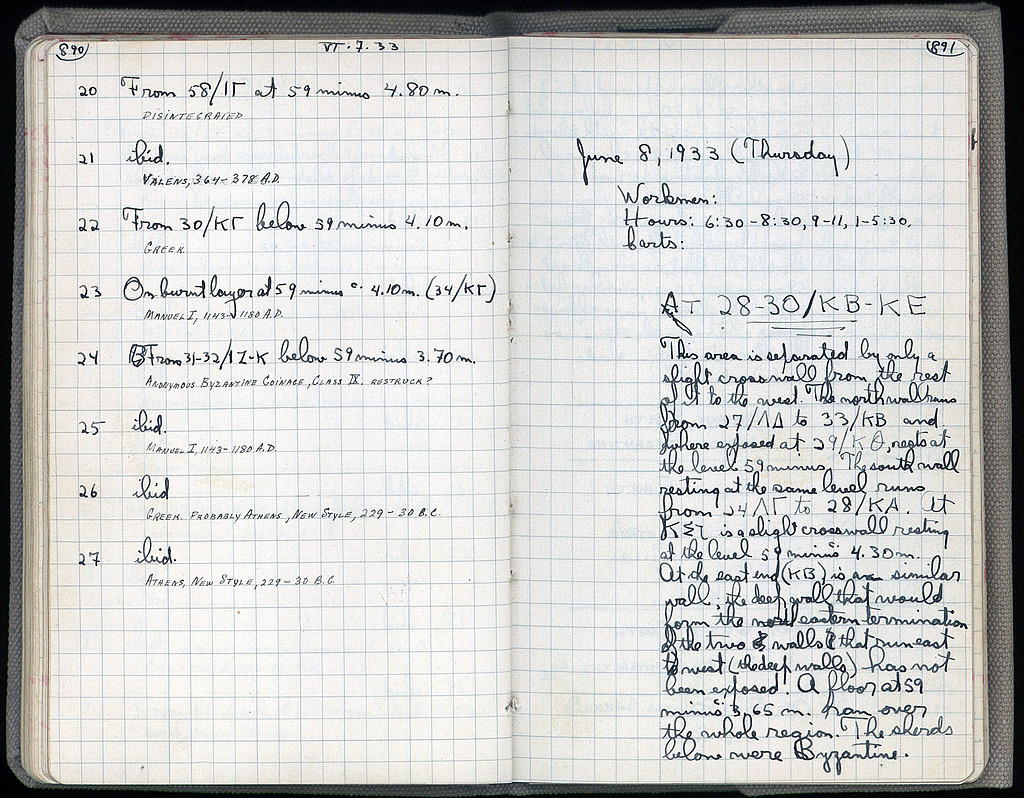 890
VI.7.33
20 From 58/ΙΓ at 59 minus 4.80 m.
DISINTEGRATED
21 ibid.
VALENS, 364-378 A.D.
22 From 30/ΚΓ below 59 minus 4.10 m.
GREEK
23 On burnt layer at 59 minus c. 4.10 m. (34/ΚΓ)
MANUEL I, 1143-1180 A.D.
24 From 31-32/ΙΖ-Κ below 59 minus 3.70 m.
ANONYMOUS BYZANTINE COINAGE, CLASS IX. RESTRUCK?
25 ibid.
MANUEL I, 1143-1180 A.D.
26 ibid
GREEK. PROBABLY ATHENS, NEW STYLE, 229-30 B.C.
27 ibid.
ATHENS, NEW STYLE, 229-30 B.C.
891
June 8, 1933 (Thursday)
Workmen:
Hours: 6:30-8:30, 9-11, 1-5:30.
Carts:
AT 28-30/ΚΒ-ΚΕ
This area is separated by only a
slight crosswall from the rest
of it to the west. The north wall runs
from 27/ΛΔ to 33/ΚΒ and
where exposed at 29/ΚΘ, rests at
the level 59 minus The south wall
resting at the same level runs
from 24 ΛΓ to 28/ΚΑ. At
is a slight crosswall resting
at the level 59 minus 4.30 m.
At the east end (ΚΒ) is a similar
wall; the deep wall that would
form the north eastern termination
of the two walls that run east
to west (the deep walls) has not
been exposed. A floor at 59
minus 3.65 m. ran over
the whole region. The sherds
below were Byzantine.